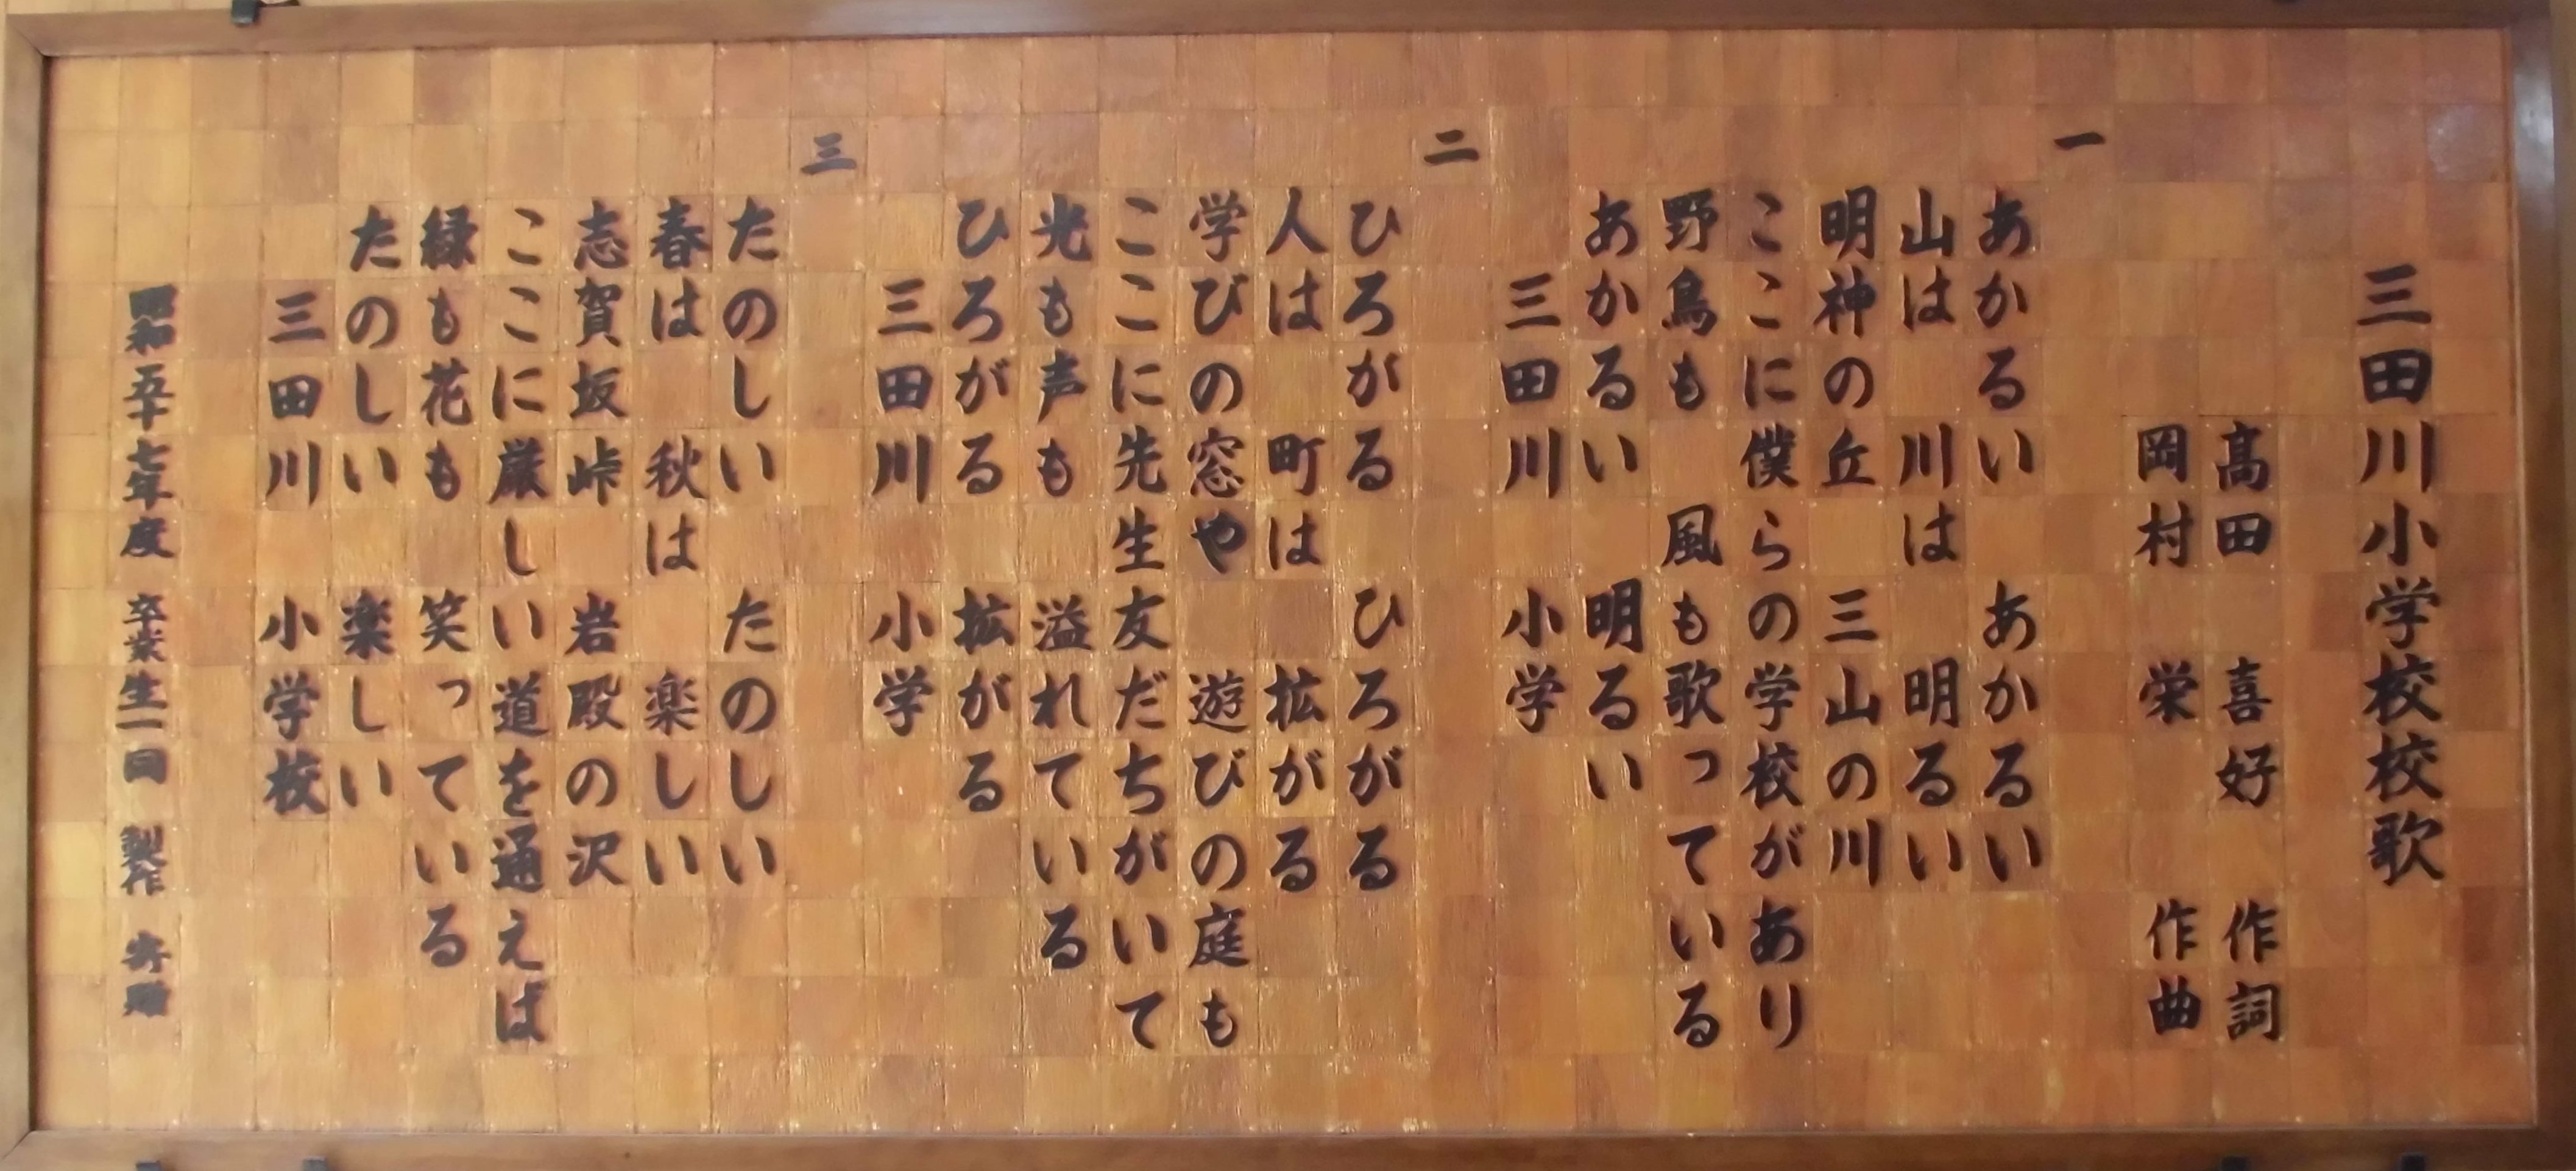 三田川小学校校歌
髙田　喜好　作詞
岡村　栄　　作曲
一
あかるい　あかるい
山は　川は　明るい
明神の丘　三山の川
ここに僕らの学校があり
野鳥も　風も歌っている
あかるい　明るい
三田川　小学
二
ひろがる　ひろがる
人は　町は　拡がる
学びの窓や　遊びの庭も
ここに先生友だちがいて
光も声も　溢れている
ひろがる　拡がる
三田川　小学
三
たのしい　たのしい
春は　秋は　楽しい
志賀坂峠　岩殿の沢
ここに厳しい道を通えば
緑も花も　笑っている
たのしい　楽しい
三田川　小学校
昭和五十七年度　卒業生一同　製作　寄贈